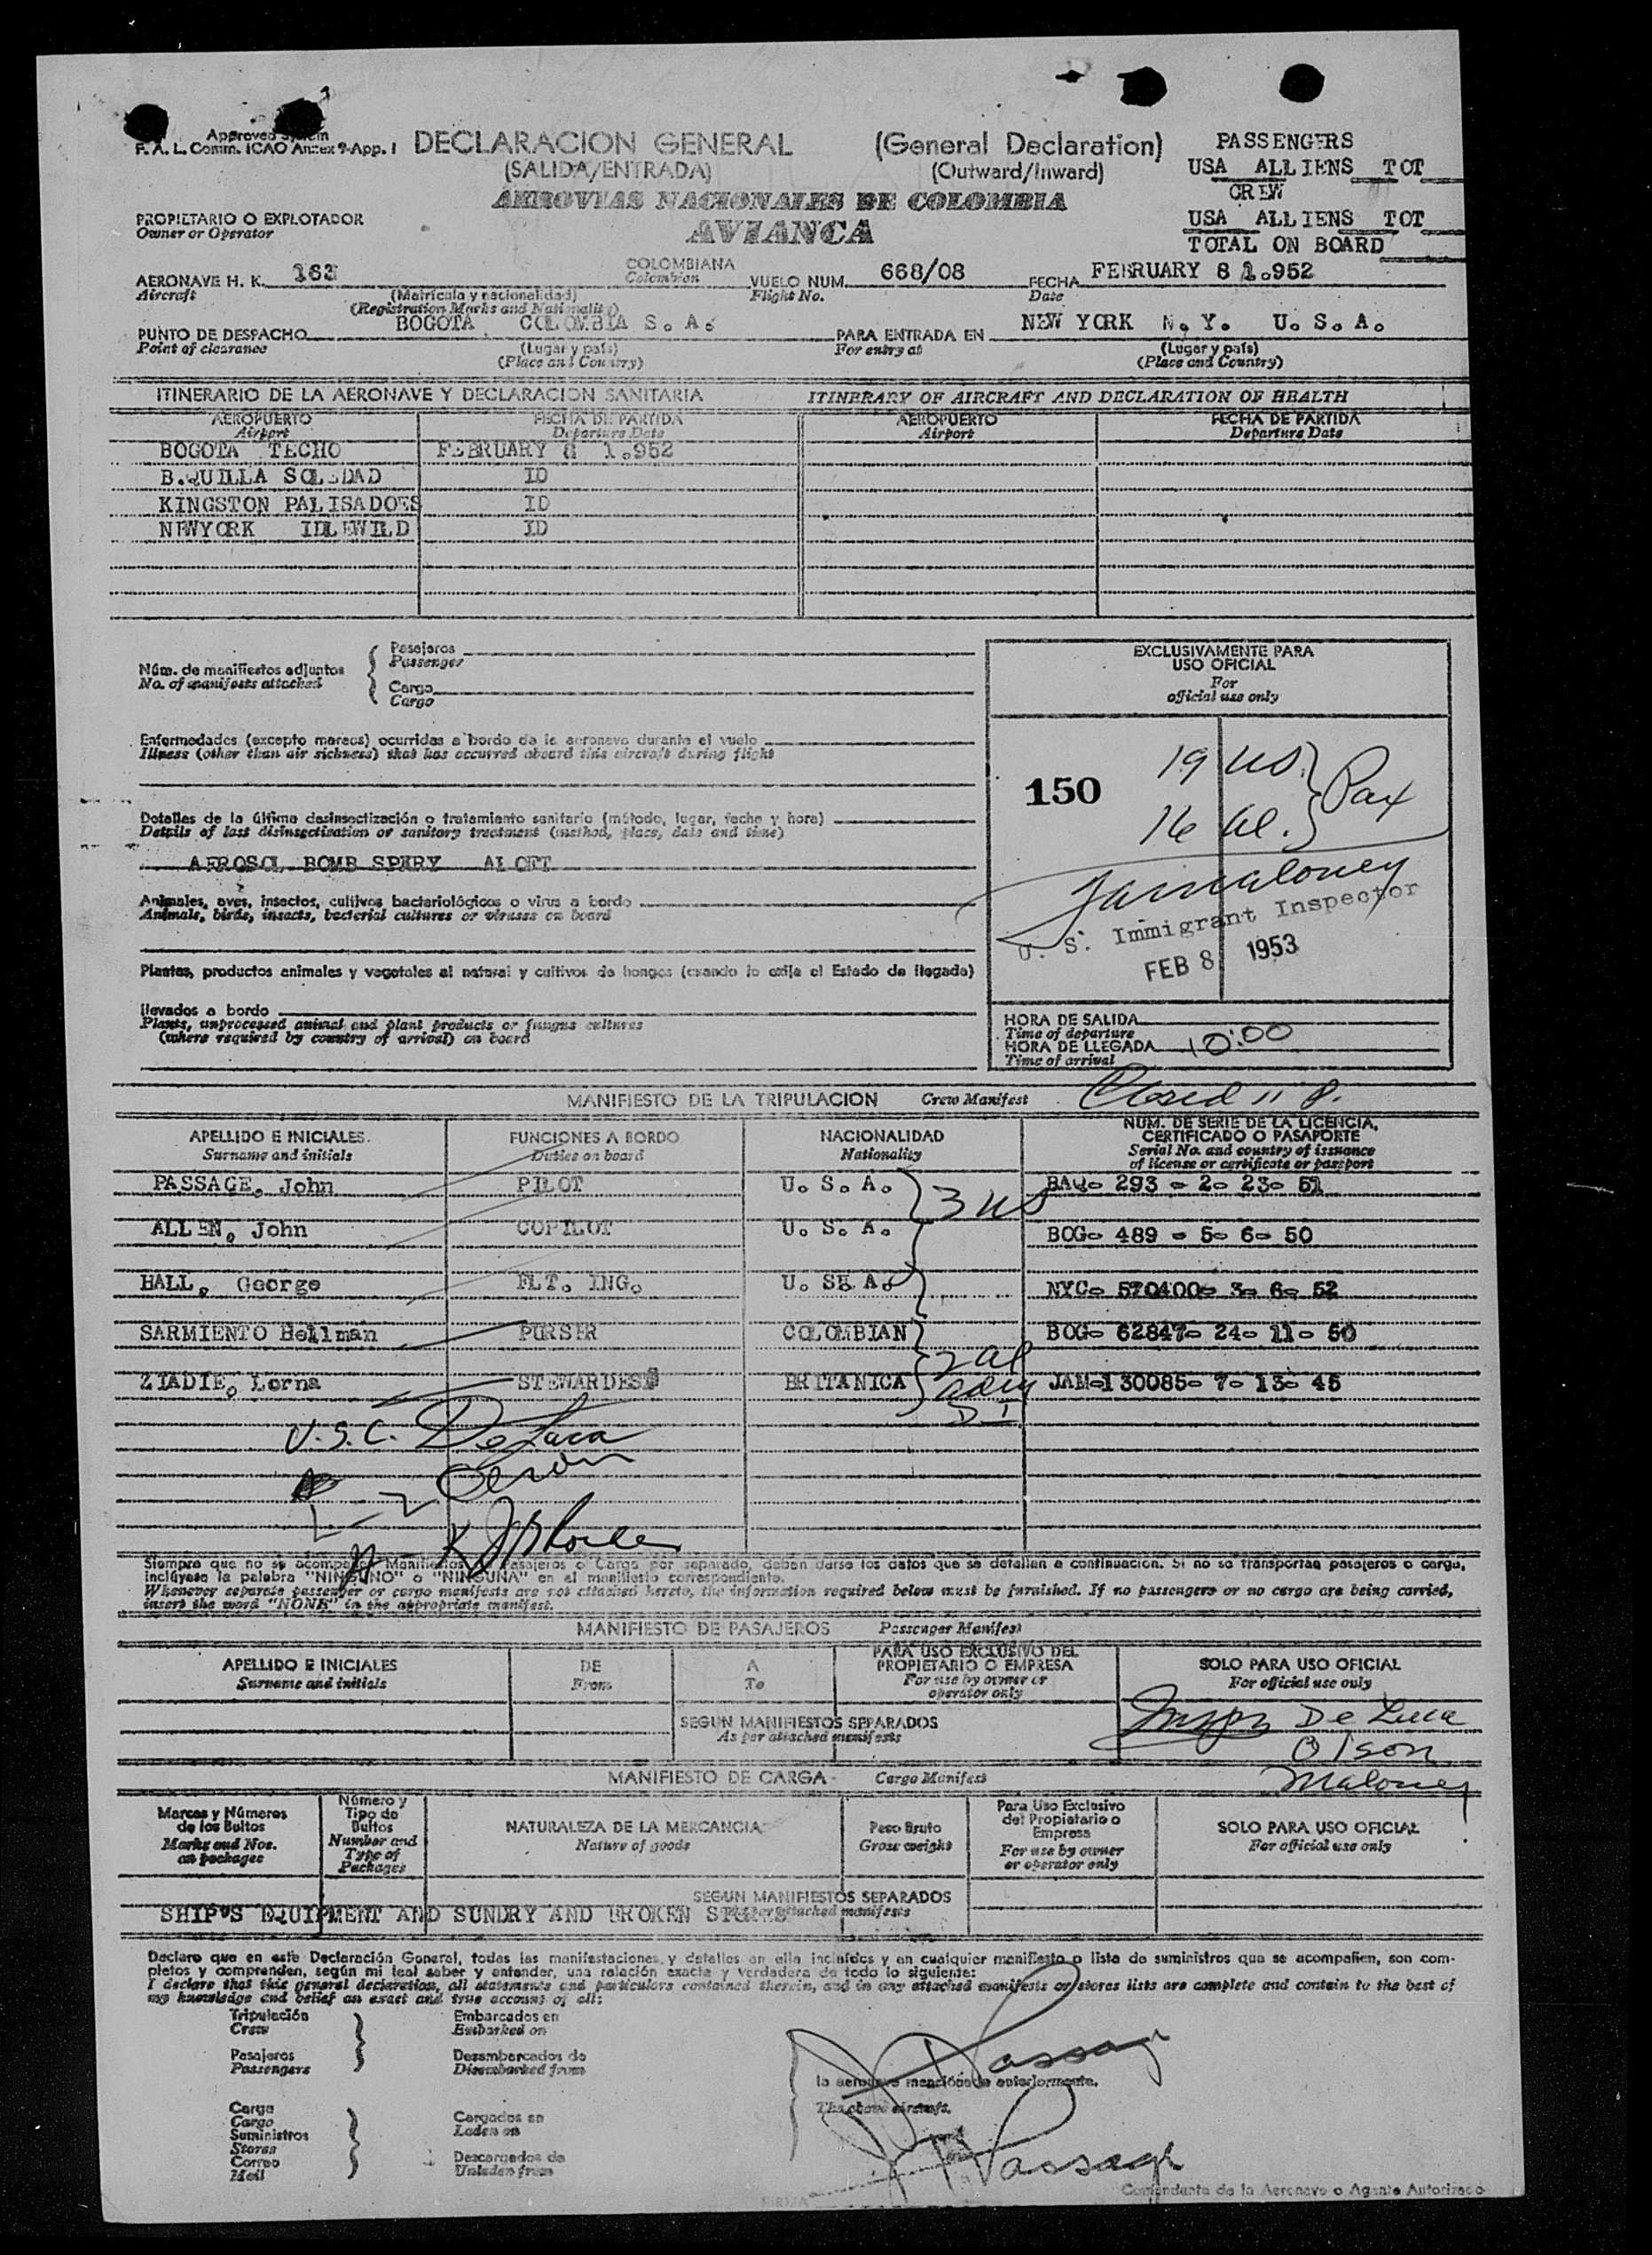 Approved System
F. A. L. Comm. ICAO Annex 9-App. I
DECLARACION GENERAL (General Declaration)
(SALIDA/ENTRADA) (Outward/Inward)
AEROVIAS NACIONALES DE COLOMBIA
AVIANCA
PASSENGERS
USA ALLIENS TOT
CREW
USA ALLIENS TOT
TOTAL ON BOARD
PROPIETARIO O EXPLOTADOR
Owner or Operator
AERONAVE H. K. 163 COLOMBIANA VUELO NUM. 668/08 FECHA FEBRUARY 8 1.952
Aircraft (Matrícula y nacionalidad) Colombian Flight No. Date
(Registration Marks and Nationality)
PUNTO DE DESPACHO BOGOTA COLOMBIA S. A. PARA ENTRADA EN NEW YORK N. Y. U. S. A.
Point of clearance (Lugar y país) For entry at (Lugar y país)
(Place and Country) (Place and Country)
ITINERARIO DE LA AERONAVE Y DECLARACION SANITARIA ITINERARY OF AIRCRAFT AND DECLARATION OF HEALTH
AEROPUERTO FECHA DE PARTIDA AEROPUERTO FECHA DE PARTIDA
Airport Departure Date Airport Departure Date
BOGOTA TECHO FEBRUARY 8 1.952
B.QUILLA SOLEDAD ID
KINGSTON PALISADOES ID
NEWYORK IDLEWILD ID
Núm. de manifiestos adjuntos
No. of manifests attached
Pasajeros
Passenger
Cargo
Cargo
EXCLUSIVAMENTE PARA
USO OFICIAL
For
official use only
150
19 US
16 al.
Pax
U. S. Immigrant Inspector
FEB 8 1953
Enfermedades (excepto mareos) ocurridas a bordo de la aeronave durante el vuelo
Illness (other than air sickness) that has occurred aboard this aircraft during flight
Detalles de la última desinsectización o tratamiento sanitario (método, lugar, fecha y hora)
Details of last disinsectisation or sanitary treatment (method, place, date and time)
AEROSOL BOMB SPERY ALOFT
Animales, aves, insectos, cultivos bacteriológicos o virus a bordo
Animals, birds, insects, bacterial cultures or viruses on board
Plantas, productos animales y vegetales al natural y cultivos de hongos (cuando lo exija el Estado de llegada)
llevados a bordo
Plants, unprocessed animal and plant products or fungus cultures
(where required by country of arrival) on board
HORA DE SALIDA
Time of departure
HORA DE LLEGADA 10:00
Time of arrival
MANIFIESTO DE LA TRIPULACION Crew Manifest Closed 11 P.
APELLIDO E INICIALES. FUNCIONES A BORDO NACIONALIDAD NUM. DE SERIE DE LA LICENCIA, CERTIFICADO O PASAPORTE
Surname and initials Duties on board Nationality Serial No. and country of issuance of license or certificate or passport
PASSAGE, John PILOT U. S. A. BAQ- 293 - 2- 23- 51
3 US
ALLEN, John COPILOT U. S. A. BOG- 489 - 5- 6- 50
HALL, George FLT. ING. U. SE A. NYC- 570400- 3- 6- 52
SARMIENTO Hellman PURSER COLOMBIAN BOG- 62847- 24- 11- 50
2 al
ZIADIE, Lorna STEWARDESS BRITANICA JAM-130085- 7- 13- 45
U.S.C.
Siempre que no se acompañen Manifiestos de Pasajeros o Carga por separado, deben darse los datos que se detallan a continuación. Si no se transportan pasajeros o carga,
inclúyase la palabra "NINGUNO" o "NINGUNA" en el manifiesto correspondiente.
Whenever separate passenger or cargo manifests are not attached hereto, the information required below must be furnished. If no passengers or no cargo are being carried,
insert the word "NONE" in the appropriate manifest.
MANIFIESTO DE PASAJEROS Passenger Manifest
APELLIDO E INICIALES DE A PARA USO EXCLUSIVO DEL PROPIETARIO O EMPRESA SOLO PARA USO OFICIAL
Surname and initials From To For use by owner or operator only For official use only
SEGUN MANIFIESTOS SEPARADOS
As per attached manifests
De Luca
Olson
Maloney
MANIFIESTO DE CARGA Cargo Manifest
Marcas y Números de los Bultos Número y Tipo de Bultos NATURALEZA DE LA MERCANCIA Peso Bruto Para Uso Exclusivo del Propietario o Empresa SOLO PARA USO OFICIAL
Marks and Nos. on packages Number and Type of Packages Nature of goods Gross weight For use by owner or operator only For official use only
SEGUN MANIFIESTOS SEPARADOS
SHIP'S EQUIPMENT AND SUNDRY AND BROKEN STORES attached manifests
Declaro que en este Declaración General, todas las manifestaciones y detalles en ella incluídos y en cualquier manifiesto o lista de suministros que se acompañen, son com-
pletos y comprenden, según mi leal saber y entender, una relación exacta y verdadera de todo lo siguiente:
I declare that this general declaration, all statements and particulars contained therein, and in any attached manifests or stores lists are complete and contain to the best of
my knowledge and belief an exact and true account of all:
Tripulación Embarcados en
Crew Embarked on
Pasajeros Desembarcados de
Passengers Disembarked from
la aeronave mencionada anteriormente.
The above aircraft.
Carga Cargados en
Cargo Laden on
Suministros
Stores
Correo Descargados de
Mail Unladen from
J Passage
J Passage
FIRMA
Comandante de la Aeronave o Agente Autorizado